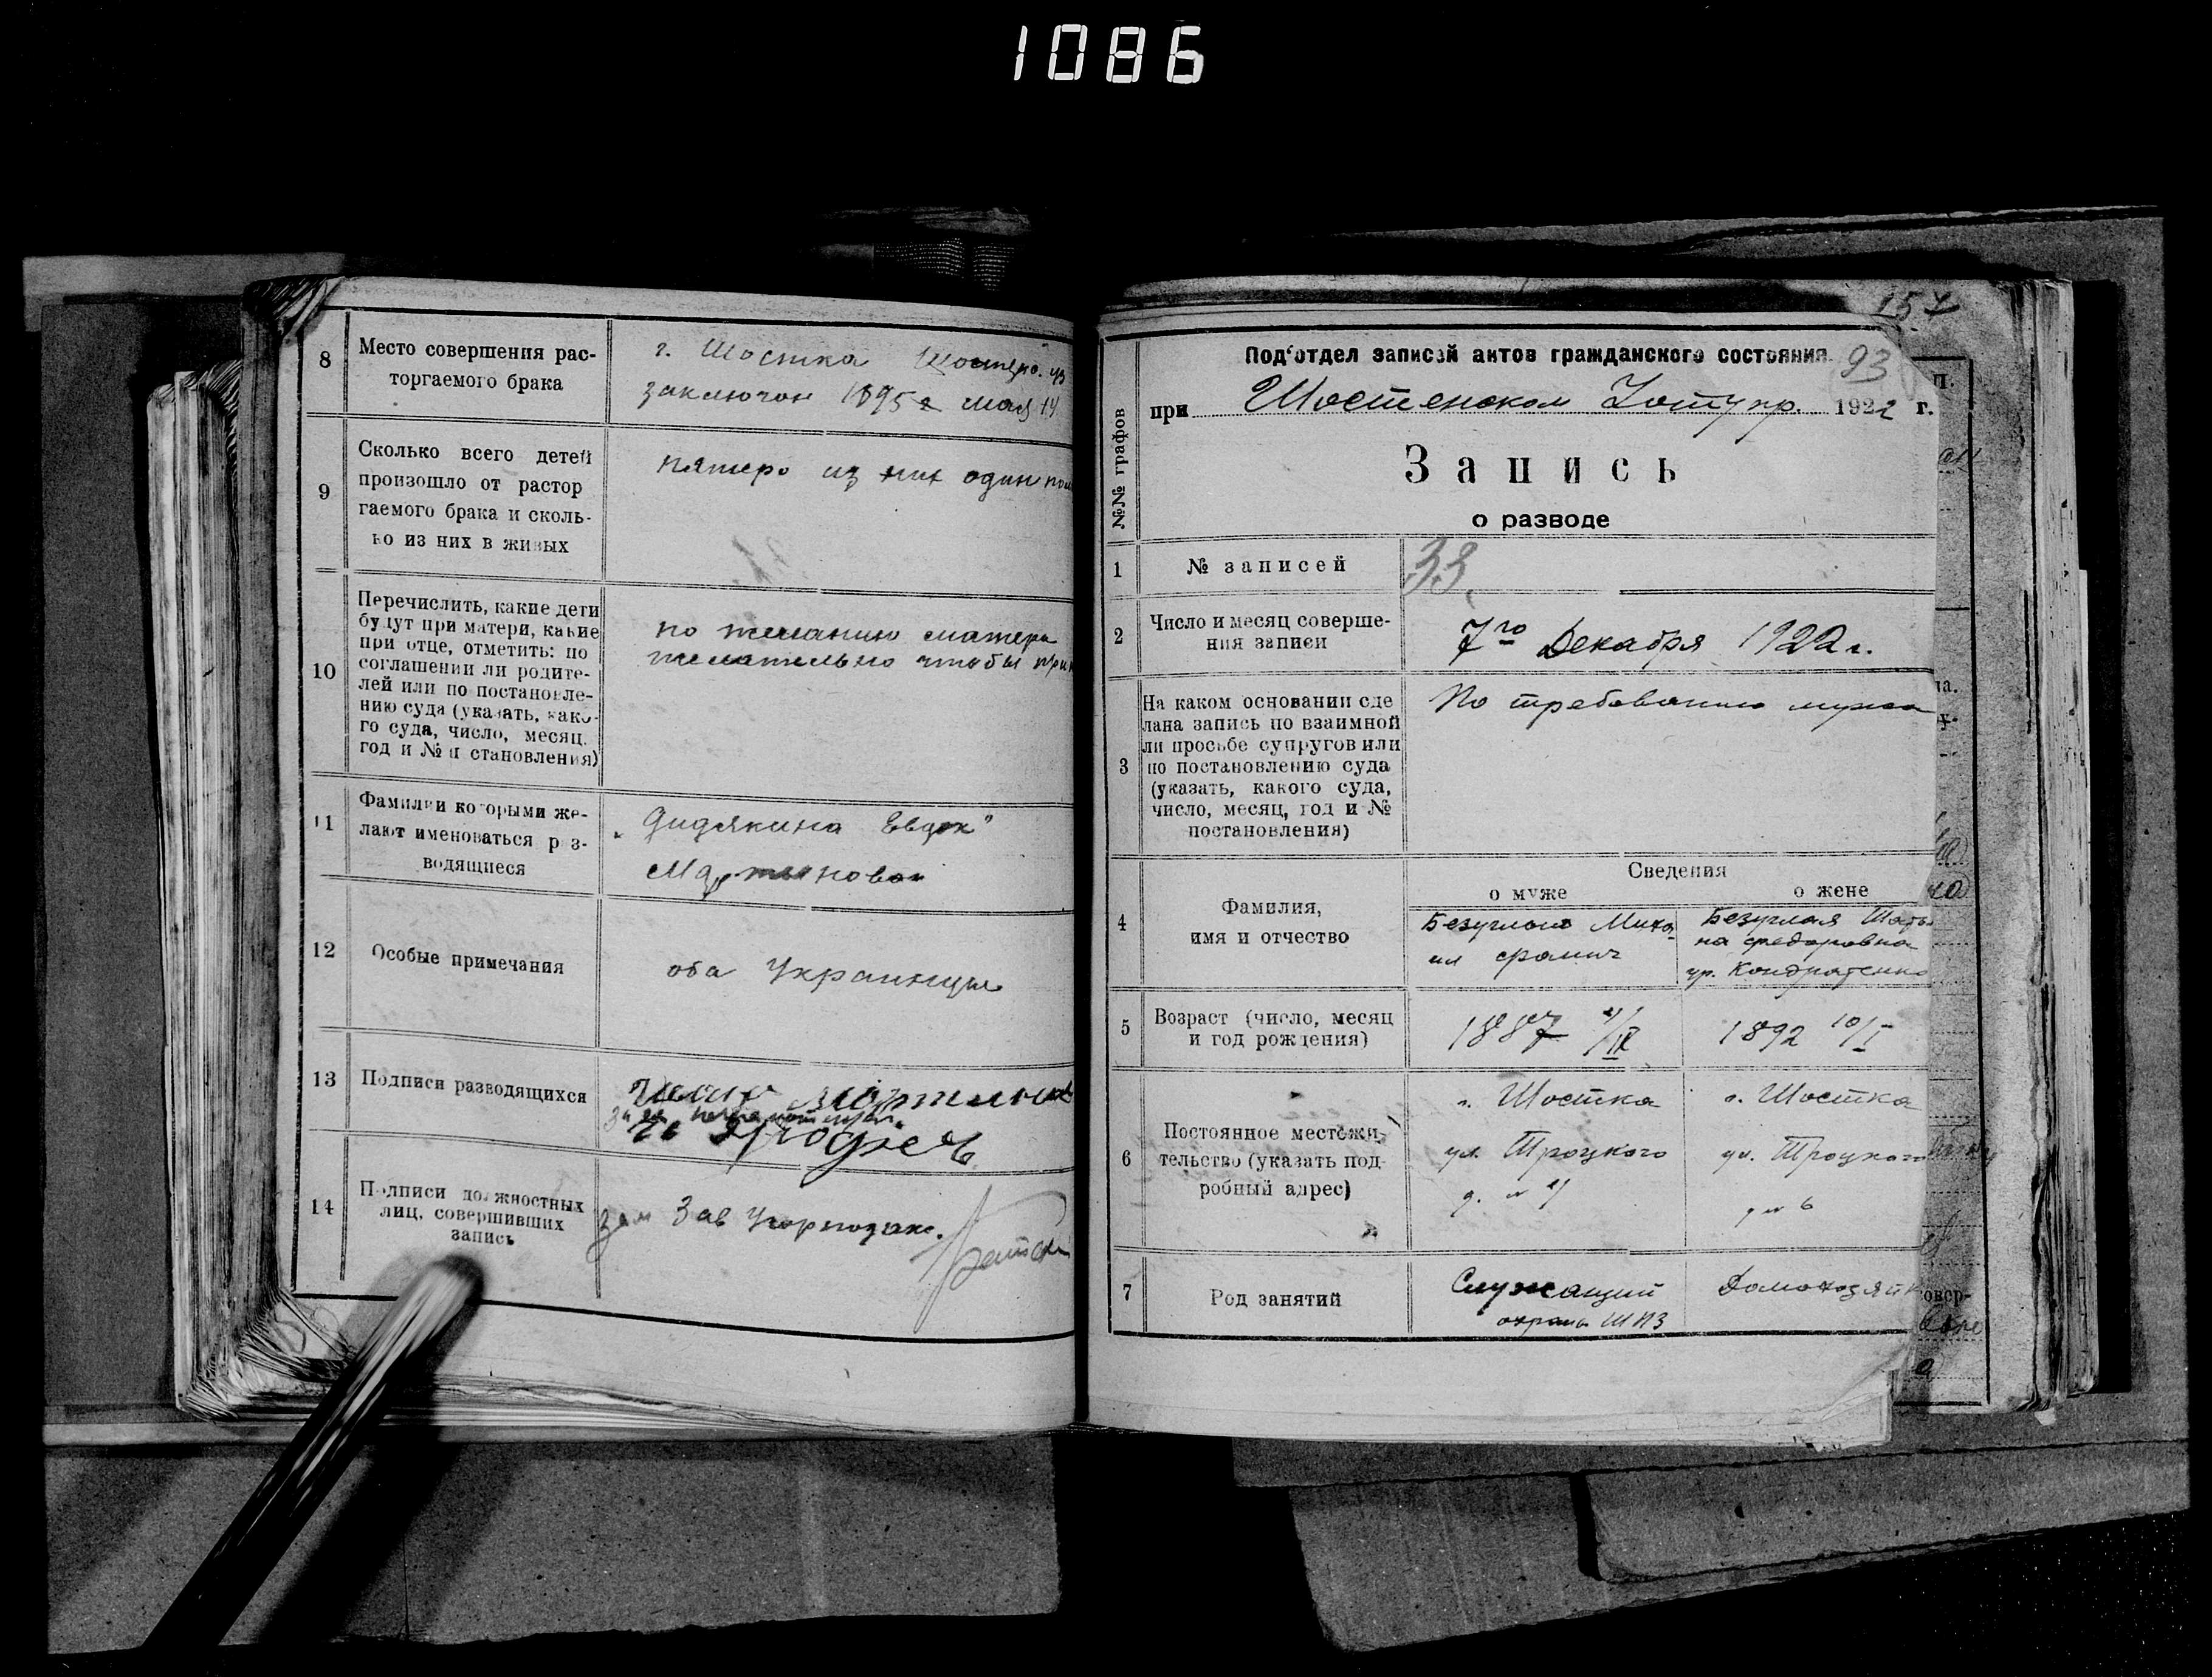 1086
8
Место совершения рас-
торгаемого брака
г. Шостка
заключон 1895 г мая 14
9
Сколько всего детей
произошло от растор
гаемого брака и сколь-
ко из них в живых
пятеро из них один
10
Перечислить, какие дети
будут при матери, какие
при отце, отметить: по
соглашении ли родите-
лей или по постановле-
нию суда (указать, како-
го суда, число, месяц,
год и № п становления)
по желанию матери
желательно чтобы
11
Фамилии которыми же-
лают именоваться р з-
водящиеся
„Дидякина Евдок"
Мартынова
12
Особые примечания
оба Украинцы
13
Подписи разводящихся
14
Подписи должностных
лиц, совершивших
запись
Зам Зав
157
93
№№ графов
Под'отдел записей актов гражданского состояния
при Шостенском 1922 г.
Запись
о разводе
1
№ записей
33.
2
Число и месяц соверше-
ния записи
7го Декабря 1922 г.
3
На каком основании сде
лана запись по взаимной
ли просьбе супругов или
по постановлению суда
(указать, какого суда,
число, месяц, год и №
постановления)
По требованию мужа
Сведения
о муже
о жене
4
Фамилия,
имя и отчество
Безуглый Миха
ил
Безуглая Татья
на Федоровна
ур. Кондратенко
5
Возраст (число, месяц
и год рождения)
1887
1892 10/I
6
Постоянное местожи-
тельство (указать под-
робный адрес)
г. Шостка
ул. Троцкого
г. Шостка
ул. Троцкого
д № 6
7
Род занятий
Служащий
охраны ШПЗ
Домохозяйк